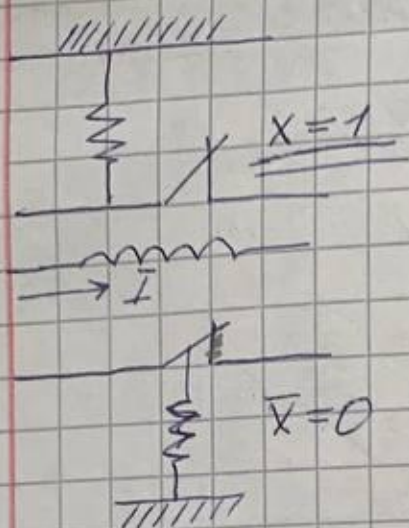 X = 1
I
X̅ = 0